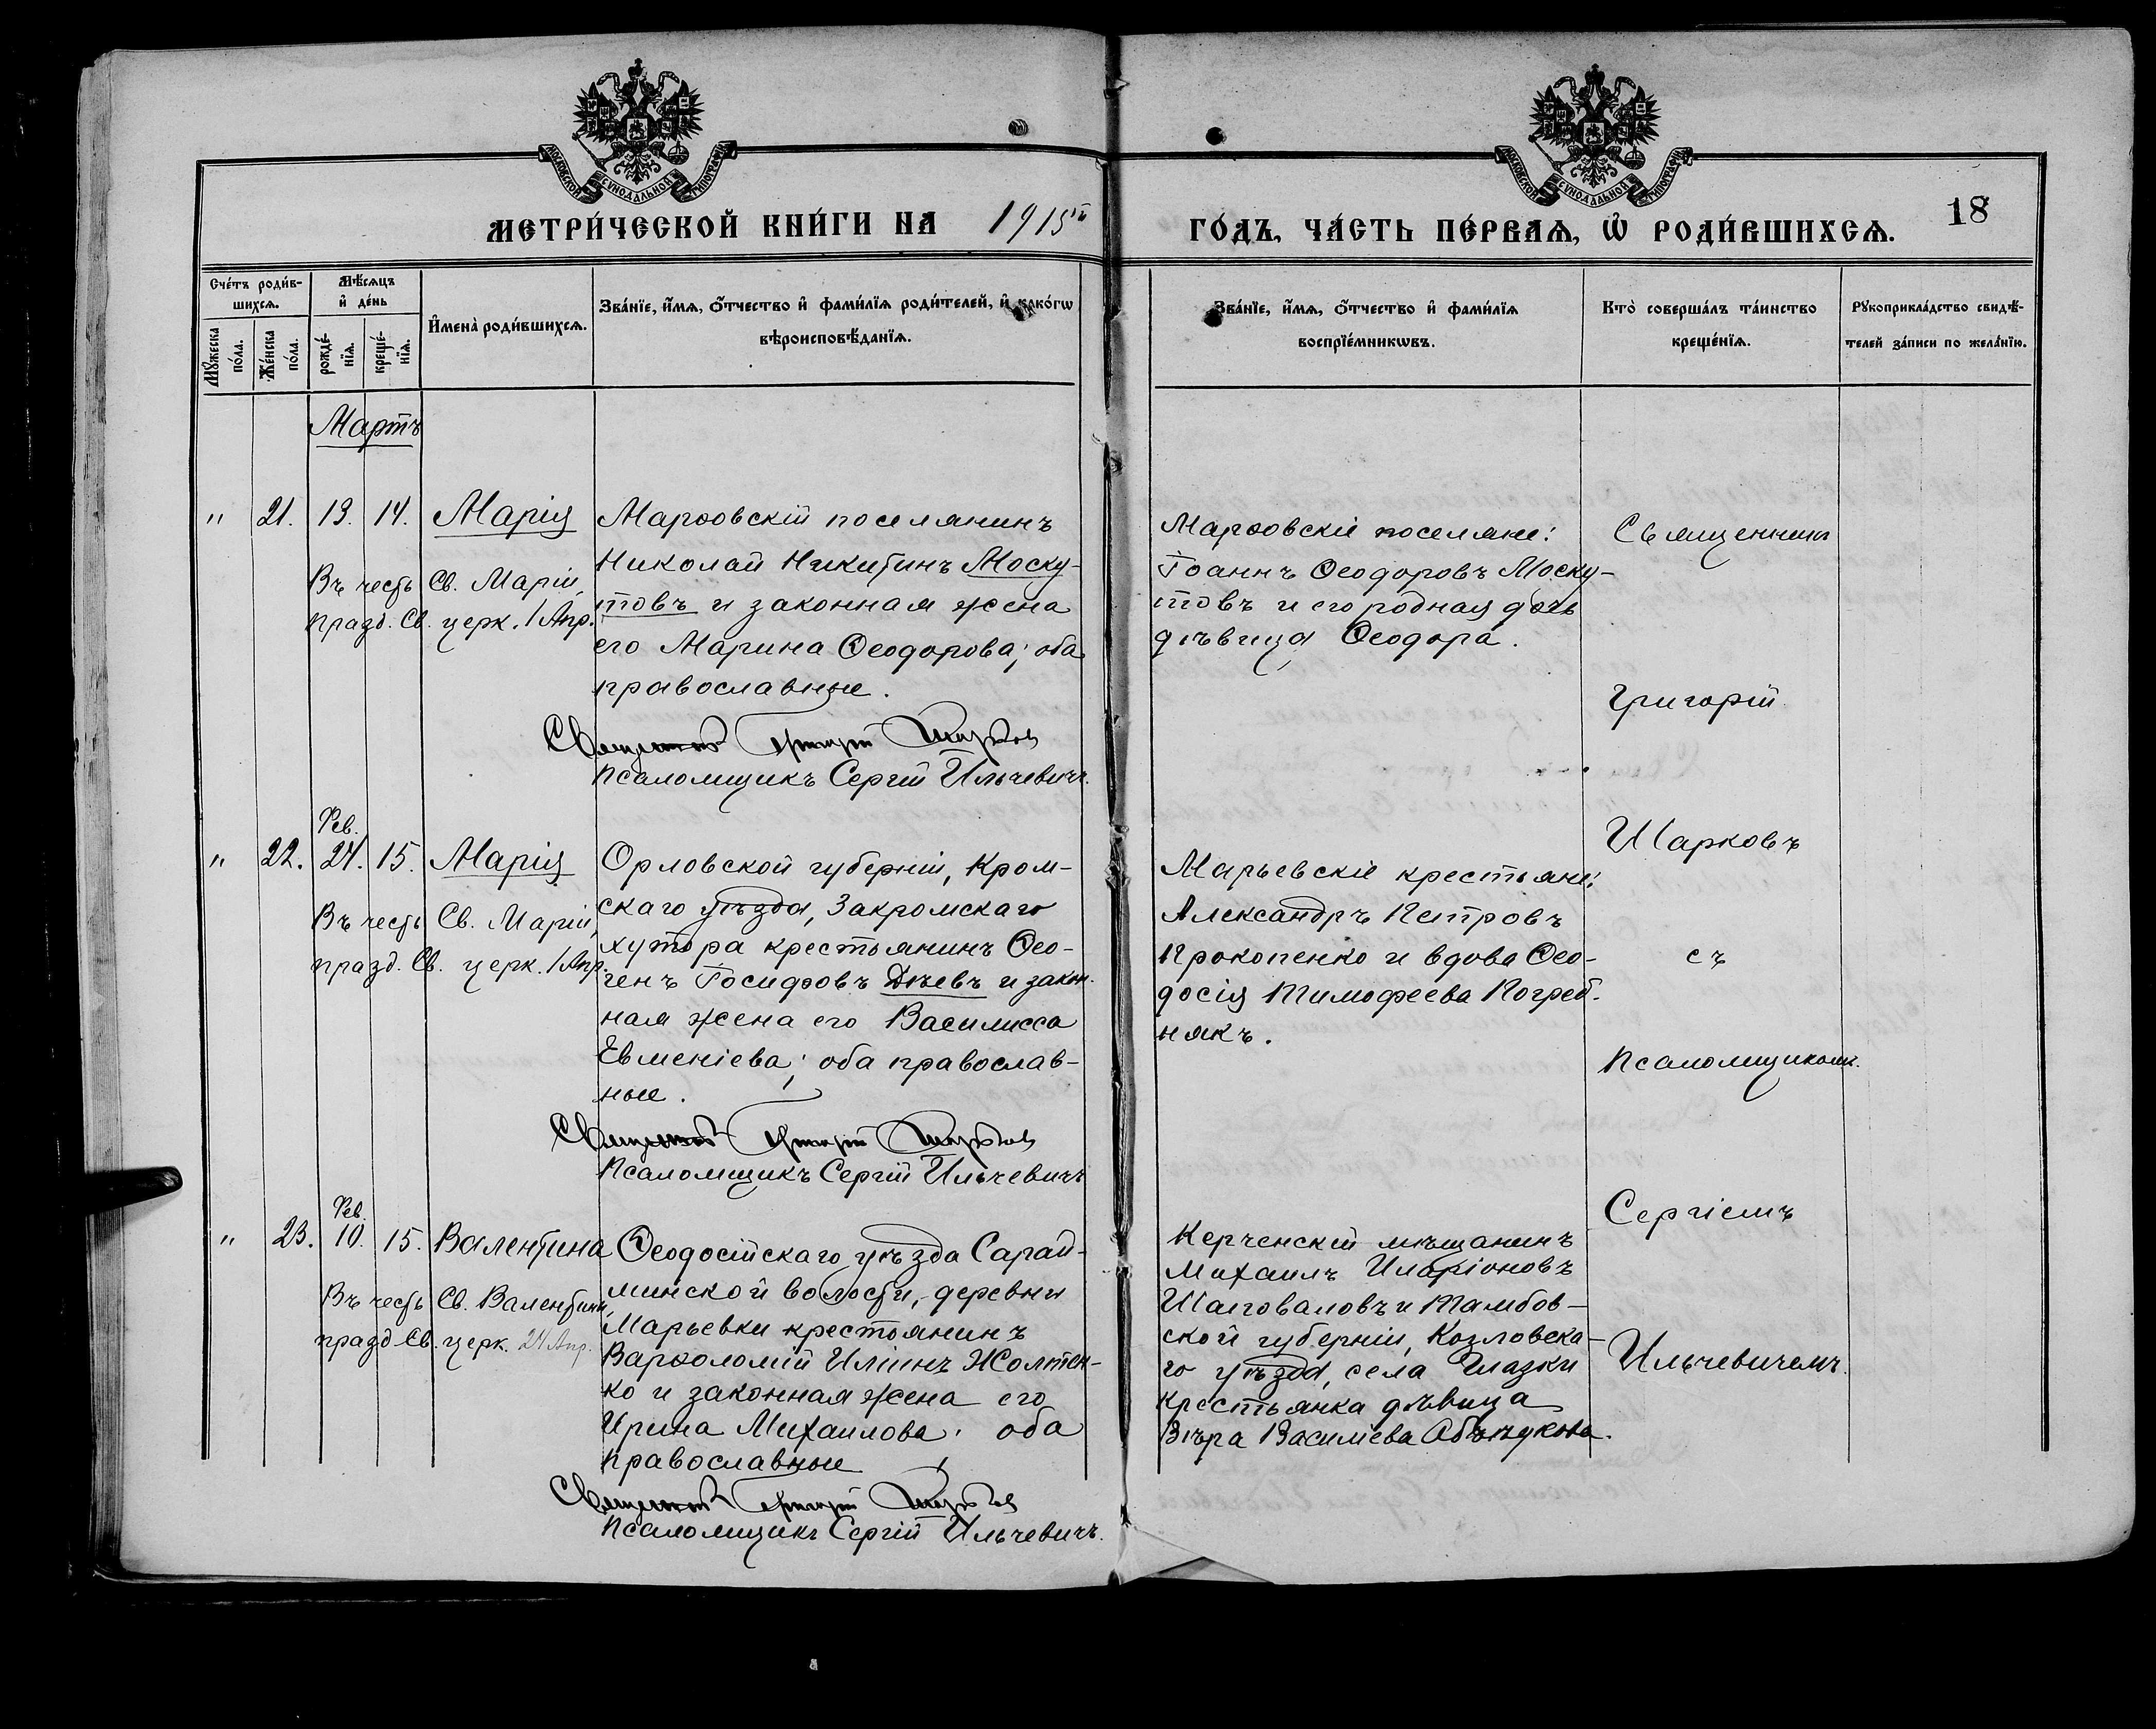 МОСКОВСКОЙ СѴНОДАЛЬНОЙ ТИПОГРАФІИ
МОСКОВСКОЙ СѴНОДАЛЬНОЙ ТИПОГРАФІИ
МЕТРИ́ЧЕСКОЙ КНИ́ГИ НА 1915й
ГО́ДЪ, ЧА́СТЬ ПЕ́РВАѦ, Ѡ҆ РОДИ́ВШИХСѦ.
18
Сче́тъ роди́в-
шихсѧ.
Мꙋ́жеска по́ла.
Же́нска по́ла.
Мѣ́сѧцъ
и҆ де́нь
рожде́-
нїѧ.
креще́-
нїѧ.
И҆мена̀ роди́вшихсѧ.
Зва́нїе, и҆́мѧ, ѻ҆́тчество и҆ фами́лїѧ роди́телей, и҆ како́гѡ
вѣроисповѣ́данїѧ.
Зва́нїе, и҆́мѧ, ѻ҆́тчество и҆ фами́лїѧ
воспрїе́мникѡвъ.
Кто̀ соверша́лъ та́инство
креще́нїѧ.
Рꙋкоприкла́дство свидѣ́-
телей за́писи по жела́нїю.
Мартъ
" 21. 13. 14. Марія
Въ честь Св. Маріи,
празд. Св. церк. 1 Апр.
Марѳовскій поселянинъ
Николай Никитинъ Моску-
товъ и законная жена
его Марина Ѳеодорова; оба
православные.
Священникъ Григорій Шарковъ
Псаломщикъ Сергій Ильчевичъ.
Марѳовскіе поселяне:
Іоаннъ Ѳеодоровъ Моску-
товъ и его родная дочь
дѣвица Ѳеодора.
Священникъ
Григорій
Шарковъ
съ
Псаломщикомъ.
Сергіемъ
Ильчевичемъ.
Фев.
" 22. 24. 15. Марія
Въ честь Св. Маріи,
празд. Св. церк. 1 Апр.
Орловской губерніи, Кром-
скаго уѣзда, Закромскаго
хутора крестьянинъ Ѳео-
генъ Іосифовъ Дѣевъ и закон-
ная жена его Василисса
Евменіева; оба православ-
ные.
Священникъ Григорій Шарковъ
Псаломщикъ Сергій Ильчевичъ
Марьевскіе крестьяне:
Александръ Петровъ
Прокопенко и вдова Ѳео-
досія Тимофеева Погреб-
някъ.
Фев.
" 23. 10. 15. Валентина
Въ честь Св. Валентины,
празд. Св. церк. 24 Апр.
Ѳеодосійскаго уѣзда Сарай-
минской волости, деревни
Марьевки крестьянинъ
Варѳоломій Иліинъ Жолтен-
ко и законная жена его
Ирина Михаилова; оба
православные
Священникъ Григорій Шарковъ
Псаломщикъ Сергій Ильчевичъ.
Керченскій мѣщанинъ
Михаилъ Иларіоновъ
Шаповаловъ и Тамбов-
ской губерніи, Козловска-
го уѣзда, села Глазки
крестьянка дѣвица
Вѣра Василіева